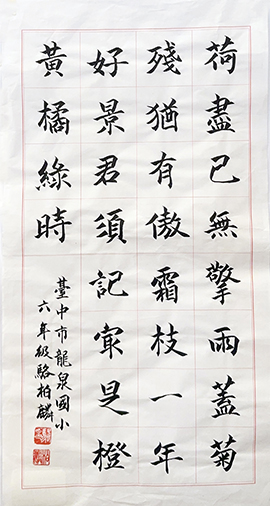 荷盡已無擎雨蓋菊
殘猶有傲霜枝一年
好景君須記㝡是橙
黃橘綠時
臺中市龍泉國小
六年級駱柏麟